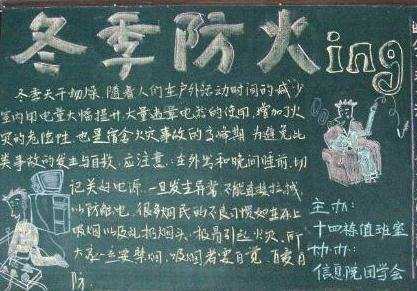 冬季防火ing
冬季天干物燥,随着人们在户外活动时间的减少
室内用电量大幅提升,大量
电器的使用,增加了火
灾的危险性,也是宿舍火灾事故的高峰期,为避免此
类事故的发生与自救,应注意:在外出和晚间睡前,切
记关好电源,一旦发生异常
以防触电。很多烟民的不良习惯如在床上
吸烟以及乱扔烟头,极易引起火灾,所
大家一定要禁烟,吸烟者要自觉
防
主办:
十四栋值班室
协办:
信息院团学会